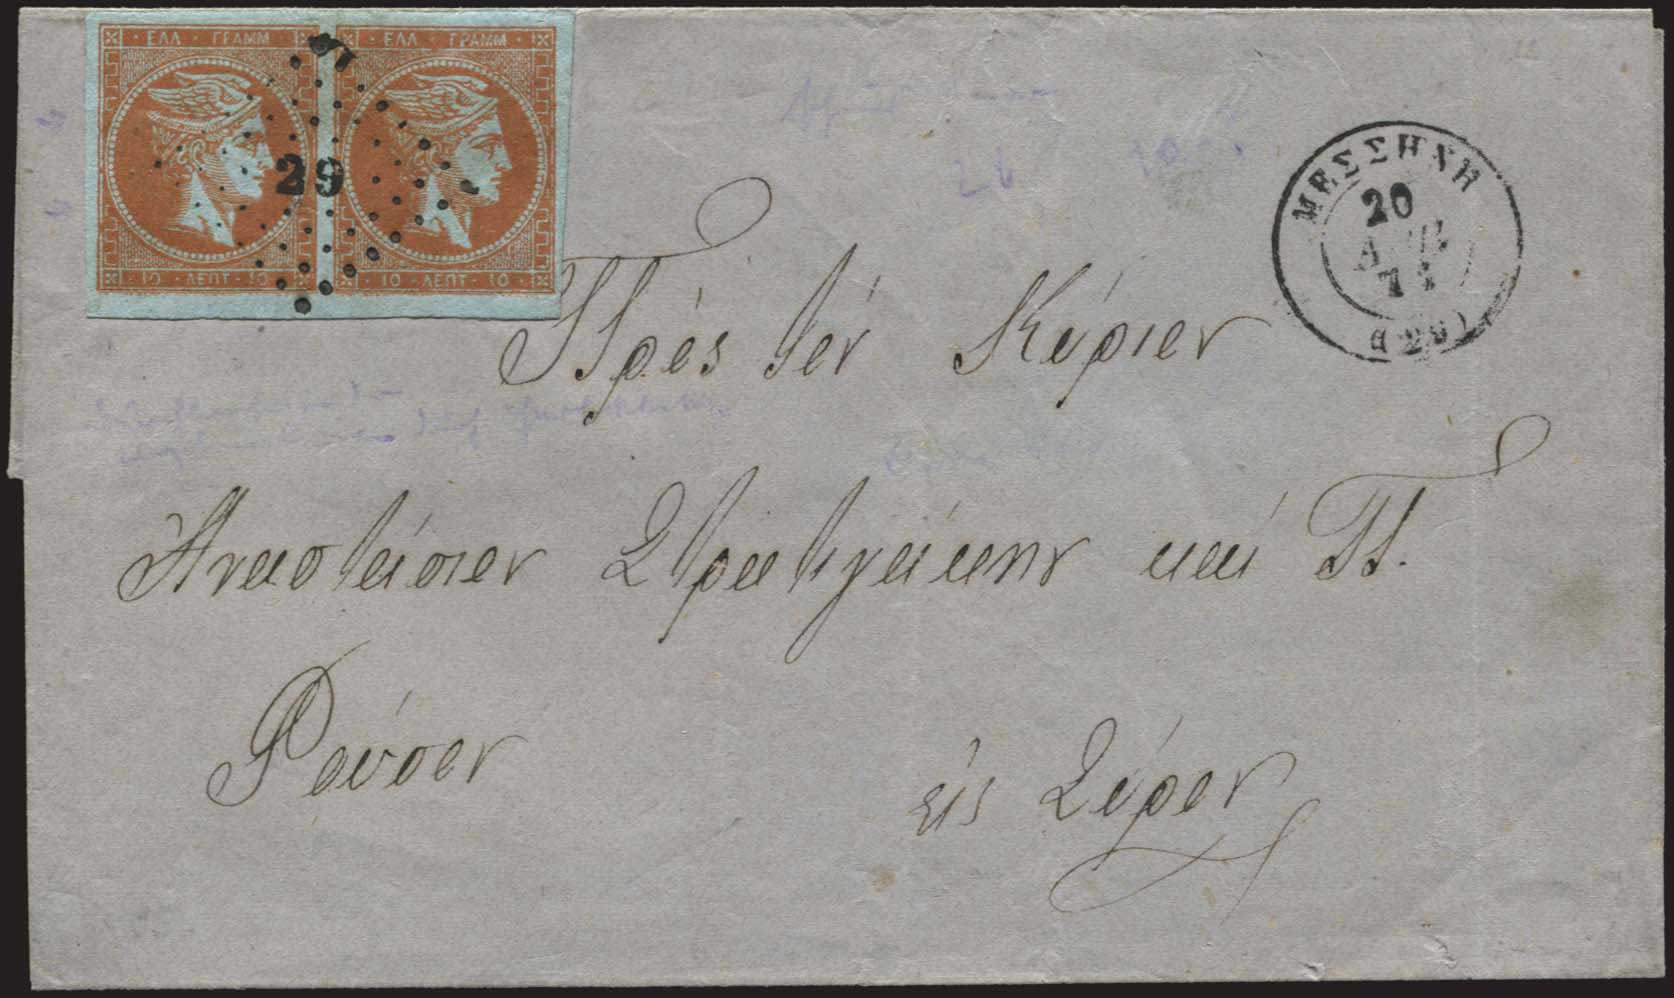 ΕΛΛ · ΓΡΑΜΜ ΕΛΛ · ΓΡΑΜΜ
29
10 · ΛΕΠΤ · 10 10 · ΛΕΠΤ · 10
ΜΕΣΣΗΝΗ
20
(29)
Πρός τόν Κύριον
Αναστάσιον Στρατηγάκην καί Π.
Ρούσον
εἰς Σύρον